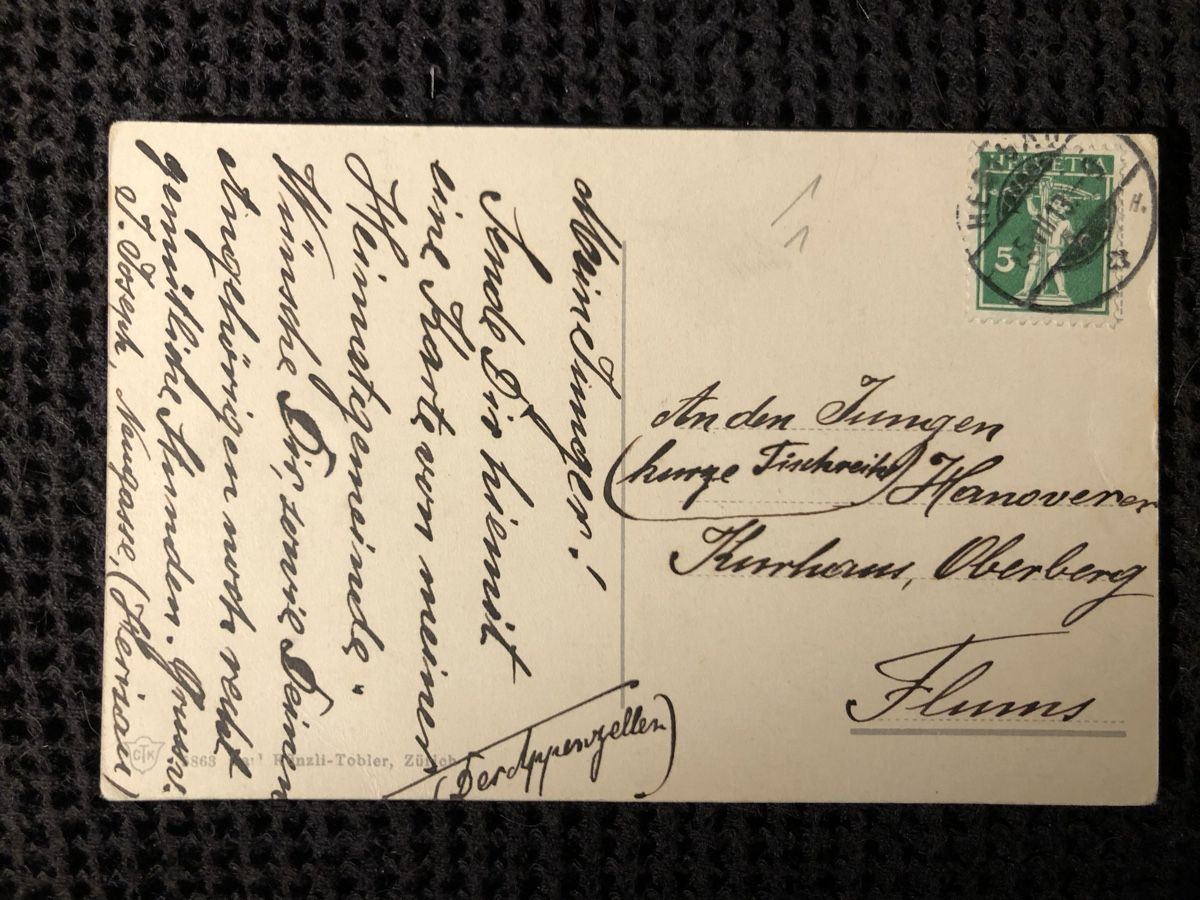 Mein Junger!
Sende Dir hiemit
eine Karte von meiner
Heimatgemeinde"
Wünsche Dir, sowie Deinen
Angehörigen noch recht
gemütliche Stunden. Gruss v.
J. Joseph, Neugasse, (Herisau)
(Der Appenzeller)
HELVETIA
5
An den Jungen
(kurze) Hanoverer
Kurhaus, Oberberg
Flums
CTK
5863 Karl Künzli-Tobler, Zürich